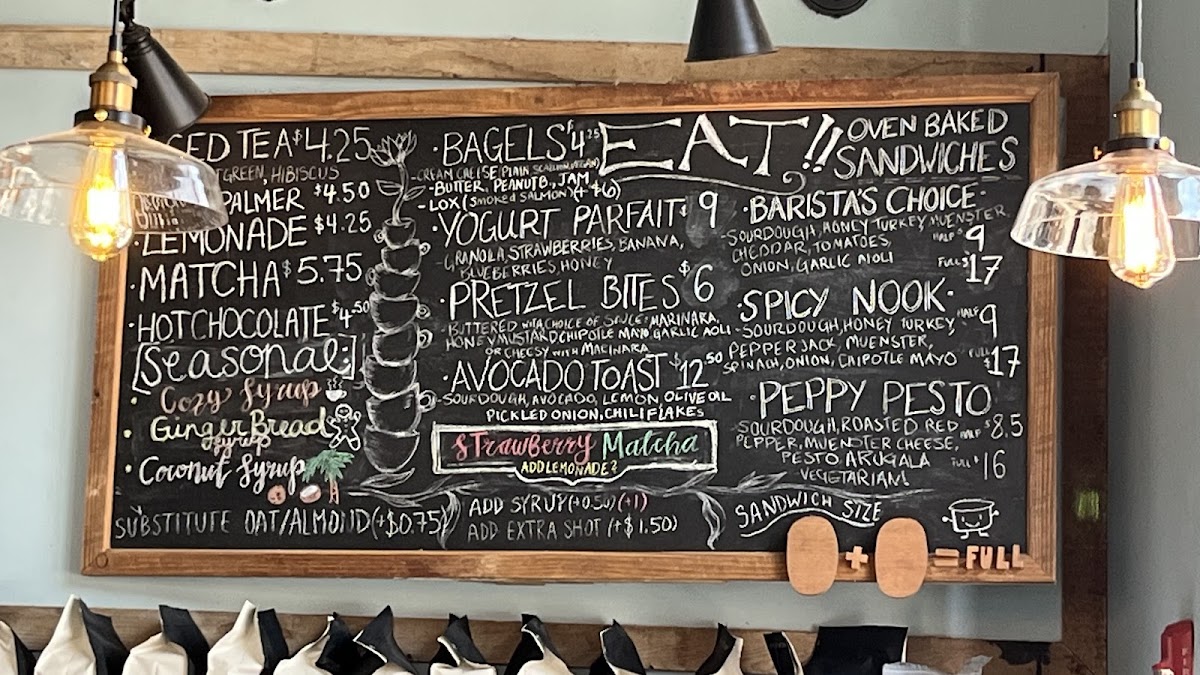 ICED TEA $4.25
GREEN, HIBISCUS
PALMER $4.50
·LEMONADE $4.25
·MATCHA $5.75
·HOT CHOCOLATE $4.50
Seasonal:
· Cozy Syrup
· GingerBread
Syrup
· Coconut Syrup
SUBSTITUTE OAT/ALMOND (+$0.75)
·BAGELS $4.25
-CREAM CHEESE (PLAIN, SCALLION, VEGAN)
-BUTTER, PEANUT B., JAM
-LOX (SMOKED SALMON) (+$6)
·YOGURT PARFAIT $9
-GRANOLA, STRAWBERRIES, BANANA,
BLUEBERRIES, HONEY
·PRETZEL BITES $6
-BUTTERED WITH CHOICE OF SAUCE: MARINARA,
HONEY MUSTARD CHIPOTLE MAYO, GARLIC AOLI
OR CHEESY WITH MARINARA
·AVOCADO TOAST $12.50
-SOURDOUGH, AVOCADO, LEMON, OLIVE OIL
PICKLED ONION, CHILI FLAKES
STRAWBERRY Matcha
ADD LEMONADE?
ADD SYRUP (+0.50) (+1)
ADD EXTRA SHOT (+$1.50)
EAT!!
OVEN BAKED
SANDWICHES
·BARISTA'S CHOICE·
-SOURDOUGH, HONEY TURKEY, MUENSTER,
CHEDDAR, TOMATOES,
ONION, GARLIC AIOLI
HALF $9
FULL $17
·SPICY NOOK·
-SOURDOUGH, HONEY TURKEY,
PEPPER JACK, MUENSTER,
SPINACH, ONION, CHIPOTLE MAYO
HALF 9
FULL $17
·PEPPY PESTO
SOURDOUGH, ROASTED RED
PEPPER, MUENSTER CHEESE,
PESTO ARUGALA
VEGETARIAN!
HALF $8.5
FULL $16
SANDWICH SIZE
+ = FULL